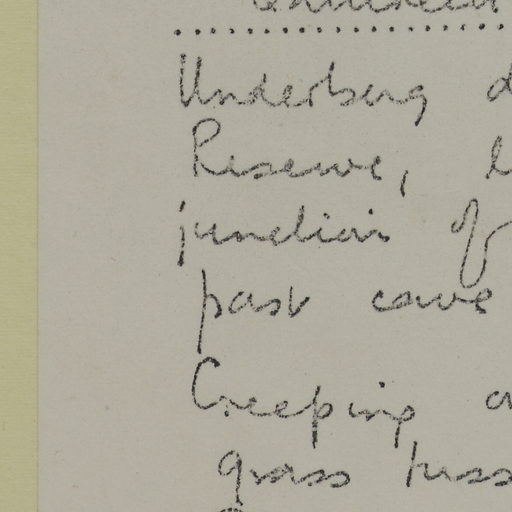 Underberg d
Reserve, 
junction of
past cave
Creeping 
grass tuss